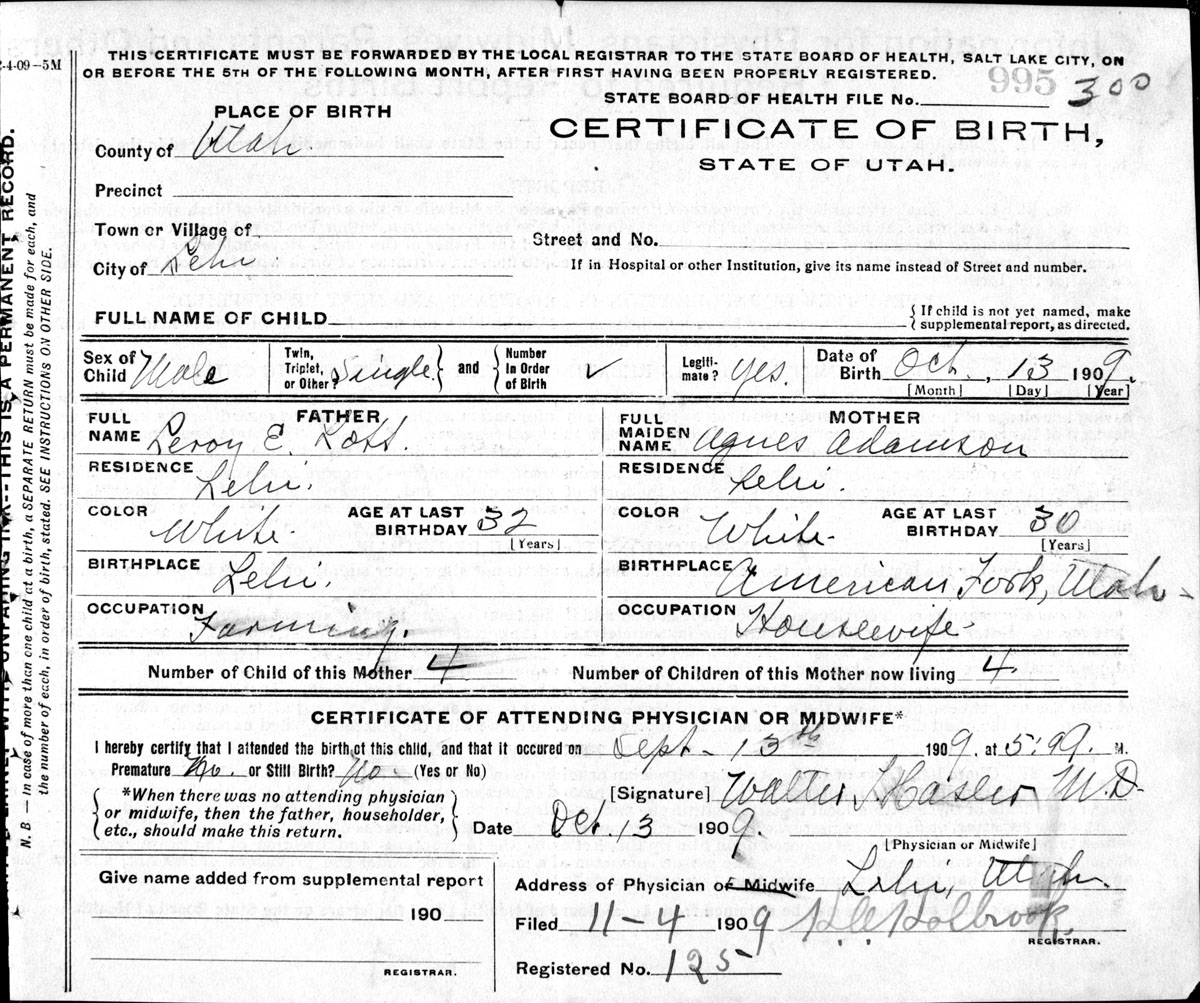 2-4-09-5M
THIS CERTIFICATE MUST BE FORWARDED BY THE LOCAL REGISTRAR TO THE STATE BOARD OF HEALTH, SALT LAKE CITY, ON
OR BEFORE THE 5TH OF THE FOLLOWING MONTH, AFTER FIRST HAVING BEEN PROPERLY REGISTERED.
995
STATE BOARD OF HEALTH FILE No. 300
PLACE OF BIRTH
CERTIFICATE OF BIRTH,
STATE OF UTAH.
County of Utah
Precinct
Town or Village of
Street and No.
City of Lehi
If in Hospital or other Institution, give its name instead of Street and number.
FULL NAME OF CHILD
{If child is not yet named, make
supplemental report, as directed.
Sex of Child Male
Twin, Triplet, or Other? Single } and { Number In Order of Birth ✓
Legiti-mate? Yes.
Date of Birth Oct., 13 1909.
[Month] [Day] [Year]
FATHER
FULL NAME Leroy E. Lott.
MOTHER
FULL MAIDEN NAME Agnes Adamson
RESIDENCE Lehi.
RESIDENCE Lehi.
COLOR White. AGE AT LAST BIRTHDAY 32 [Years]
COLOR White. AGE AT LAST BIRTHDAY 30 [Years]
BIRTHPLACE Lehi.
BIRTHPLACE American Fork, Utah
OCCUPATION Farming.
OCCUPATION Housewife
Number of Child of this Mother 4 Number of Children of this Mother now living 4
CERTIFICATE OF ATTENDING PHYSICIAN OR MIDWIFE*
I hereby certify that I attended the birth of this child, and that it occured on Sept - 13th 1909. at M.
Premature No. or Still Birth? No (Yes or No)
{*When there was no attending physician
or midwife, then the father, householder,
etc., should make this return.}
[Signature] Walter M.D.
Date Oct. 13 1909.
[Physician or Midwife]
Give name added from supplemental report
190
REGISTRAR.
Address of Physician or Midwife Lehi, Utah.
Filed 11-4 1909 Holbrook
REGISTRAR.
Registered No. 125
THIS IS A PERMANENT RECORD.
N. B — In case of more than one child at a birth, a SEPARATE RETURN must be made for each, and
the number of each, in order of birth, stated. SEE INSTRUCTIONS ON OTHER SIDE.